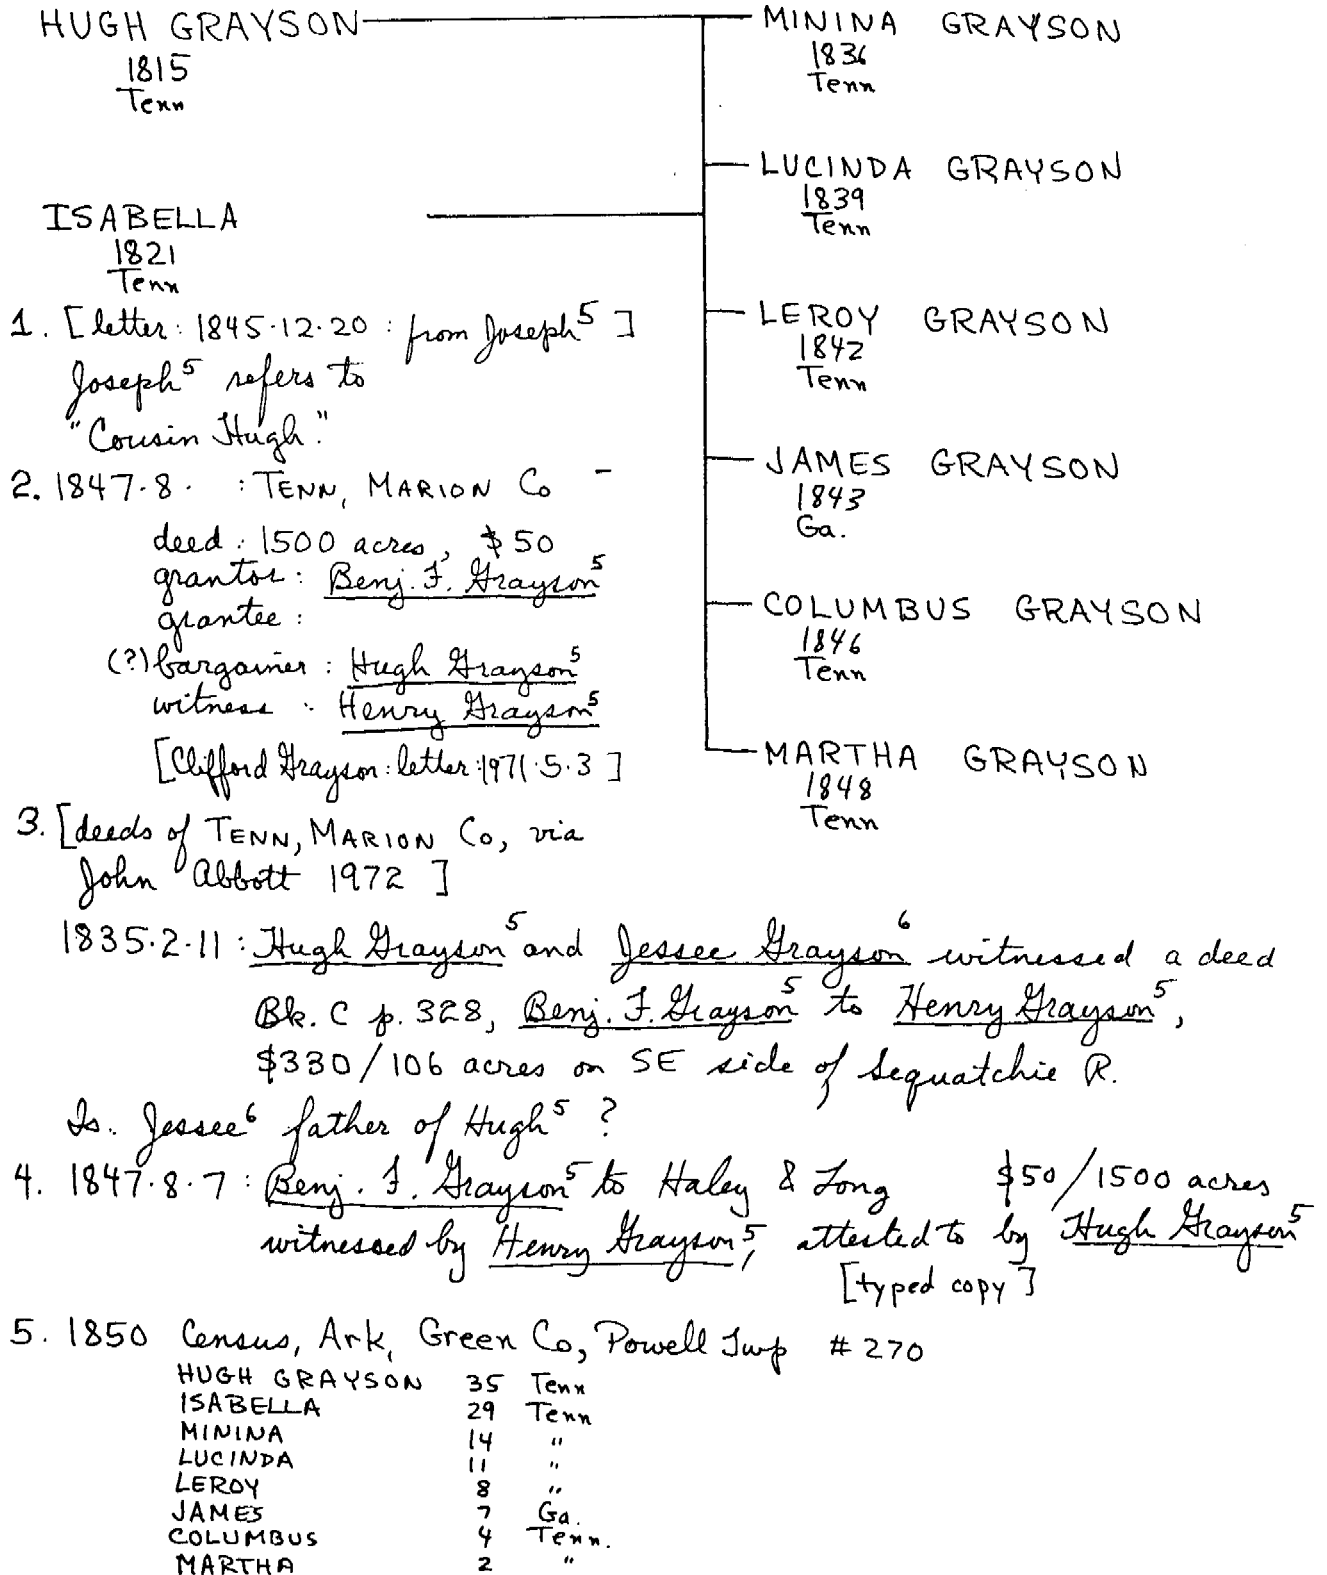 HUGH GRAYSON
1815
Tenn
ISABELLA
1821
Tenn
MININA GRAYSON
1836
Tenn
LUCINDA GRAYSON
1839
Tenn
LEROY GRAYSON
1842
Tenn
JAMES GRAYSON
1843
Ga.
COLUMBUS GRAYSON
1846
Tenn
MARTHA GRAYSON
1848
Tenn
1. [letter: 1845.12.20 : from Joseph⁵ ]
Joseph⁵ refers to
"Cousin Hugh."
2. 1847.8. : TENN, MARION Co –
deed : 1500 acres, $50
grantor : Benj. F. Grayson⁵
grantee :
(?) bargainer : Hugh Grayson⁵
witness : Henry Grayson⁵
[Clifford Grayson: letter: 1971.5.3 ]
3. [deeds of TENN, MARION Co, via
John Abbott 1972 ]
1835.2.11 : Hugh Grayson⁵ and Jessee Grayson⁶ witnessed a deed
Bk. C p. 328, Benj. F. Grayson⁵ to Henry Grayson⁵,
$330/106 acres on SE side of Sequatchie R.
Is. Jessee⁶ father of Hugh⁵ ?
4. 1847.8.7 : Benj. F. Grayson⁵ to Haley & Long $50/1500 acres
witnessed by Henry Grayson⁵, attested to by Hugh Grayson⁵
[typed copy]
5. 1850 Census, Ark, Green Co, Powell Twp # 270
HUGH GRAYSON 35 Tenn
ISABELLA 29 Tenn
MININA 14 "
LUCINDA 11 "
LEROY 8 "
JAMES 7 Ga.
COLUMBUS 4 Tenn.
MARTHA 2 "